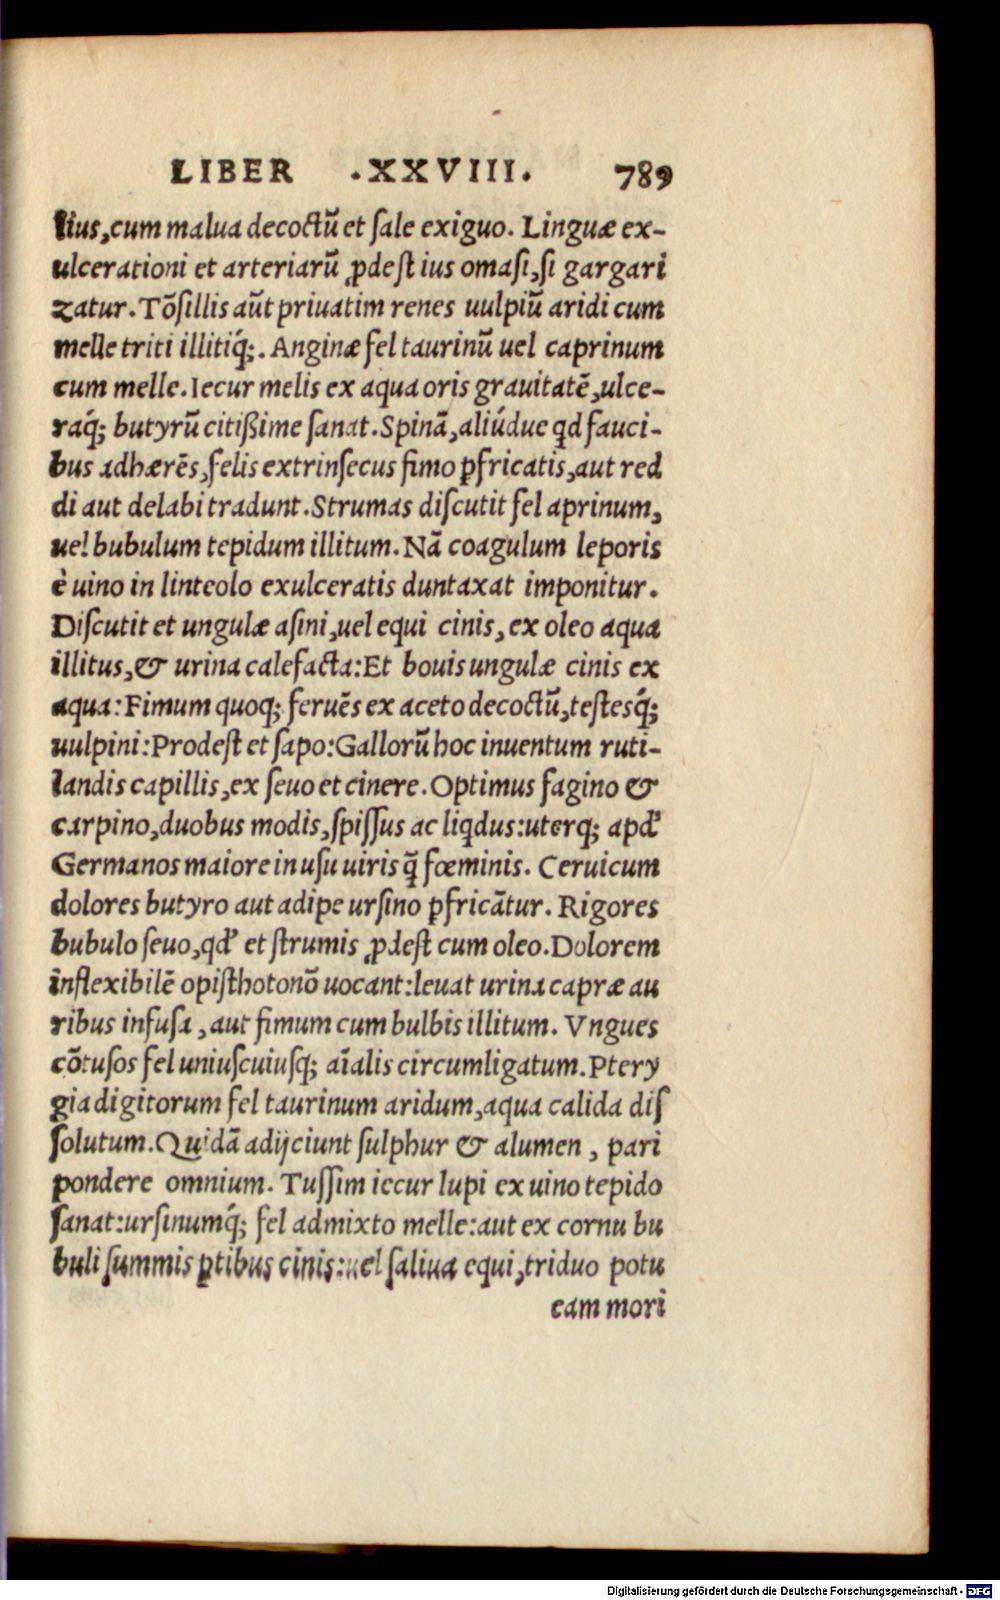 LIBER .XXVIII. 789
lius, cum malua decoctũ et ſale exiguo. Linguæ ex-
ulcerationi et arteriarũ ꝓdeſt ius omaſi, ſi gargari
zatur. Tõſillis aũt priuatim renes uulpiũ aridi cum
melle triti illitiq́;. Anginæ fel taurinũ uel caprinum
cum melle. Iecur melis ex aqua oris grauitatẽ, ulce-
raq́; butyrũ citißime ſanat. Spinã, aliúdue qd fauci-
bus adhærẽs, felis extrinſecus fimo ꝑfricatis, aut red
di aut delabi tradunt. Strumas diſcutit fel aprinum,
uel bubulum tepidum illitum. Nã coagulum leporis
è uino in linteolo exulceratis duntaxat imponitur.
Diſcutit et ungulæ aſini, uel equi cinis, ex oleo aqua
illitus, & urina calefacta: Et bouis ungulæ cinis ex
aqua: Fimum quoq; feruẽs ex aceto decoctũ, teſtesq́;
uulpini: Prodeſt et ſapo: Gallorũ hoc inuentum ruti-
landis capillis, ex ſeuo et cinere. Optimus fagino &
carpino, duobus modis, ſpiſſus ac liqdus: uterq; apd’
Germanos maiore in uſu uiris q̃ fœminis. Ceruicum
dolores butyro aut adipe urſino ꝑfricãtur. Rigores
bubulo ſeuo, qd’ et ſtrumis ꝓdeſt cum oleo. Dolorem
inflexibilẽ opiſthotonõ uocant: leuat urina capræ au
ribus infuſa, aut fimum cum bulbis illitum. Vngues
cõtuſos fel uniuſcuiuſq; aĩalis circumligatum. Ptery
gia digitorum fel taurinum aridum, aqua calida diſ
ſolutum. Quidã adijciunt ſulphur & alumen, pari
pondere omnium. Tuſſim iecur lupi ex uino tepido
ſanat: urſinumq́; fel admixto melle: aut ex cornu bu
buli ſummis ꝑtibus cinis: uel ſaliua equi, triduo potu
eam mori
Digitalisierung gefördert durch die Deutsche Forschungsgemeinschaft - DFG